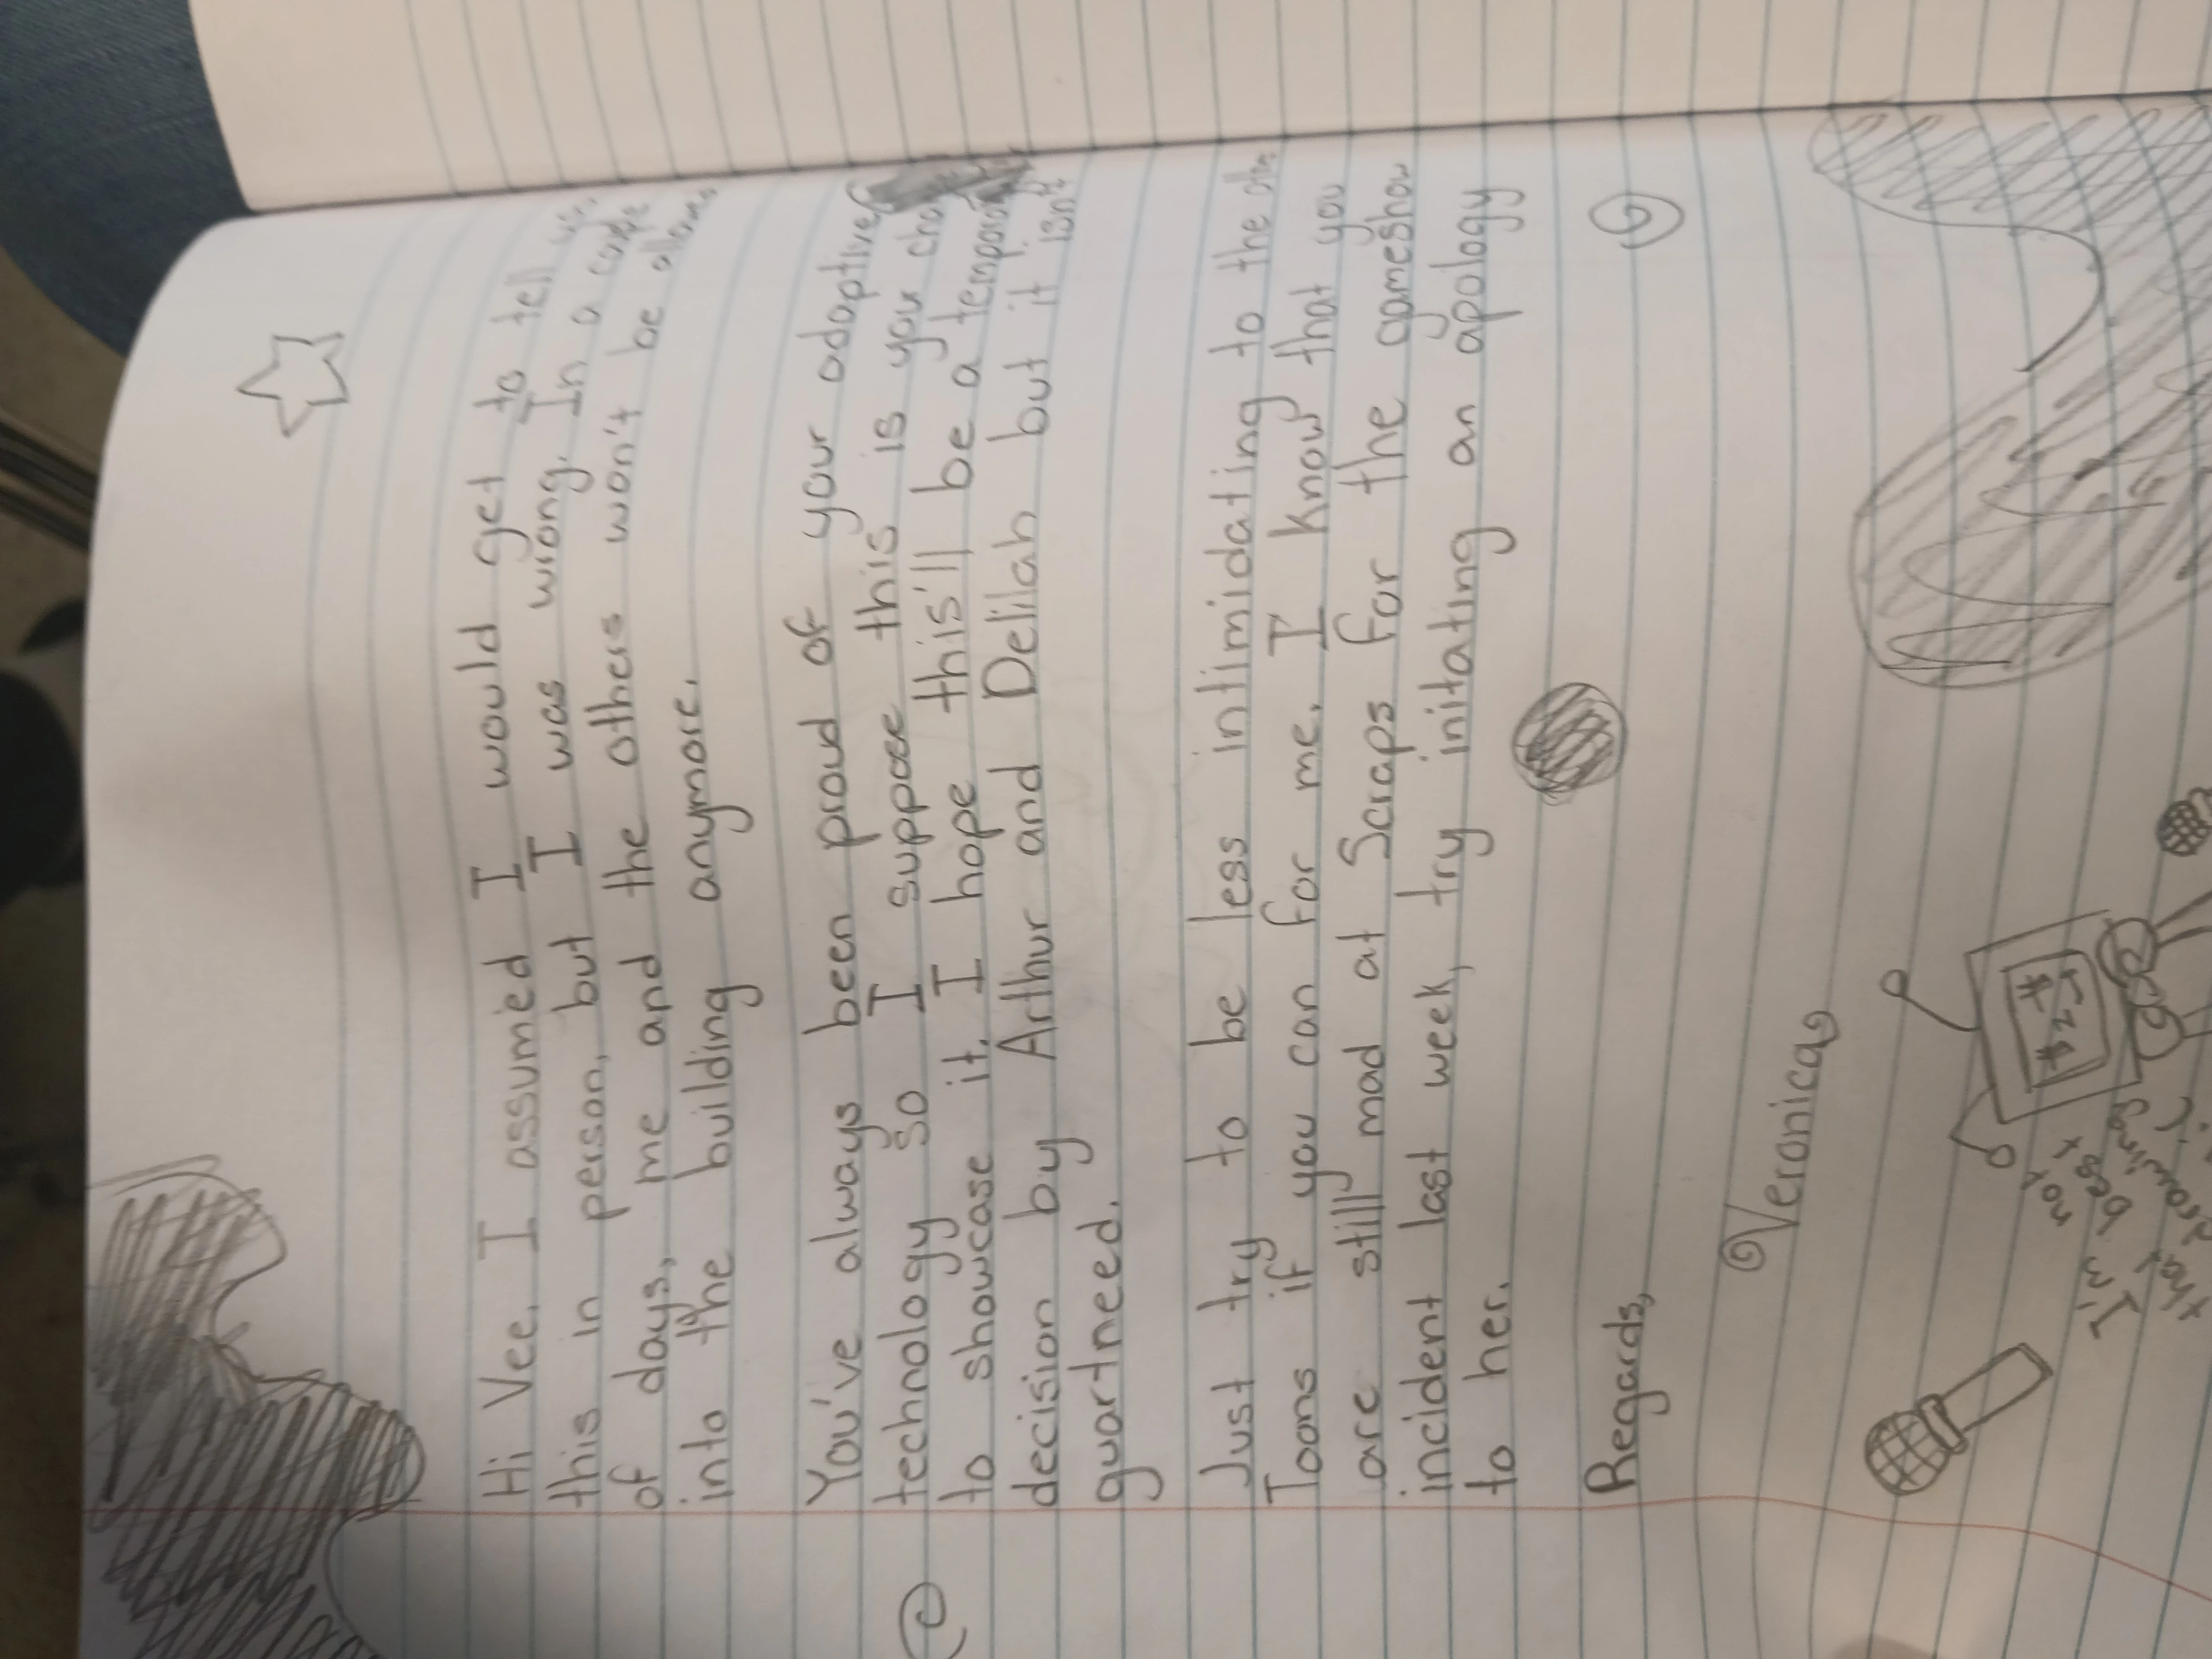 Hi Vee, I assumed I would get to tell
this in person, but I was wrong. In a
of days, me and the others won't be
into the building anymore.
You've always been proud of your adaptive
technology so I suppose this is your
to showcase it. I hope this'll be a
decision by Arthur and Delilah but it isn't
guartneed.
Just try to be less intimidating to the
Toons if you can for me. I know that you
are still mad at Scraps for the gameshow
incident last week, try initating an apology
to her.
Regards,
Veronica
I'm not
that best
Drawing